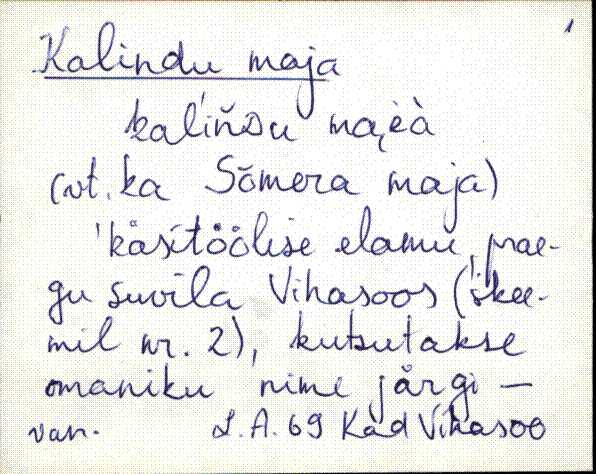 1
Kalindu maja
kalіňdu ma̬è̀à
(vt. ka Sõmera maja)
'käsitöölise elamu, prae-
gu suvila Vihasoos (skee-
mil nr. 2), kutsutakse
omaniku nime järgi —
van. L.A. 69 Kad Vihasoo